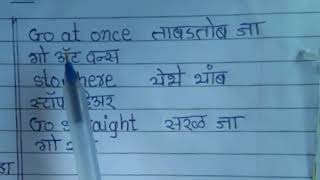 Go at once ताबडतोब जा
गो ॲट वन्स
stop here येथे थांब
स्टॉप हिअर
Go straight सरळ जा
गो